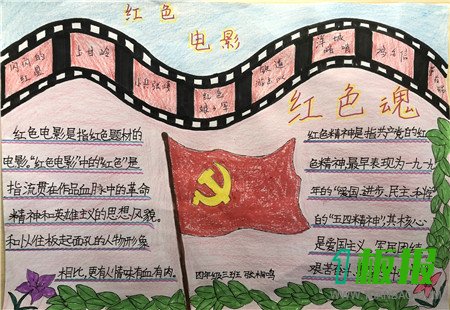 红色
电影
闪闪的
红星
上甘岭
小兵张嘎
红色
娘子军
铁道
游击队
洪城
鸡毛信
红色魂
红色电影是指红色题材的
电影,"红色电影"中的"红色"是
指流贯在作品血脉中的革命
精神和英雄主义的思想风貌。
和以往板起面孔的人物形象
相比,更有人情味有血有肉。
红色精神是指共产党的红
色精神,最早表现为一九一九
年的"爱国、进步、民主、科学"
的"五四精神",其核心
是爱国主义
军民团结
艰苦
四年级三班
板报